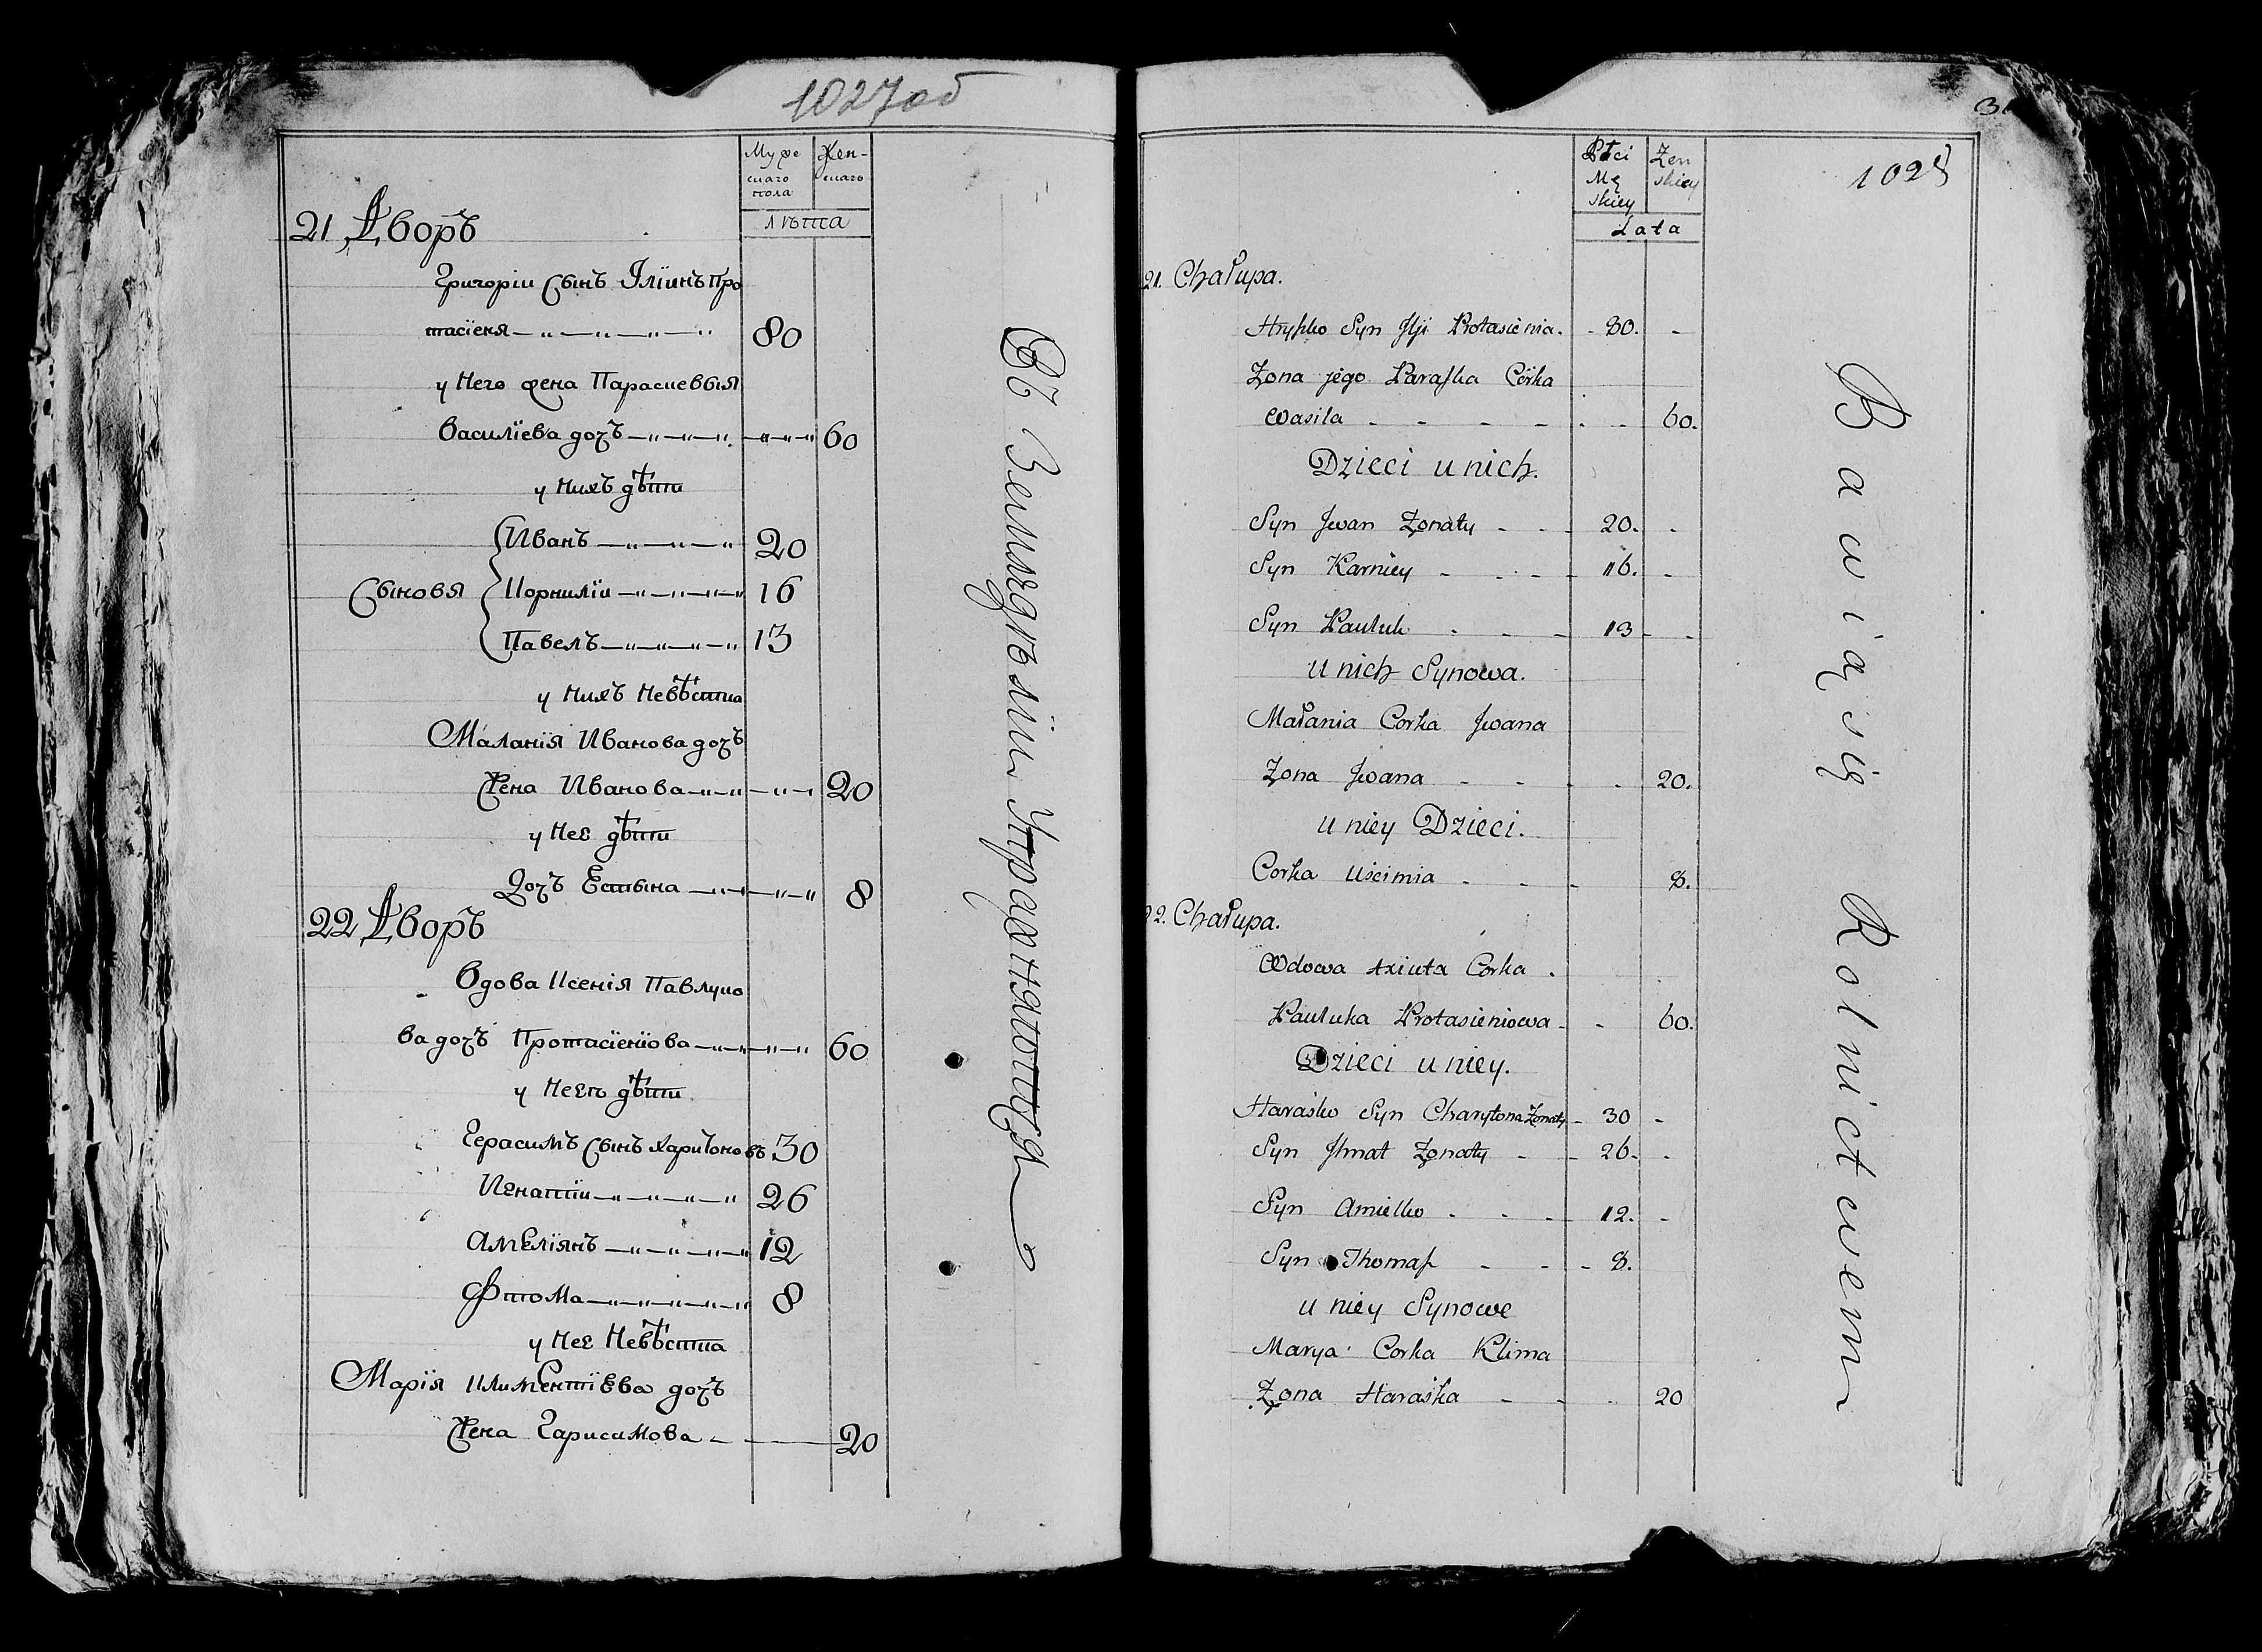 1027об
Муже
скаго
пола
Жен-
скаго
лѣта
21 Дворъ
Григоріи Сынъ Іліинъ Про
тасіеня 80
у Него жена Параскевія
Василіева дочъ 60
у Нихъ дѣти
Иванъ 20
Сыновя Корниліи 16
Павелъ 13
у Нихъ Невѣстка
Маланія Иванова дочъ
Жена Иванова 20
у Нее дѣти
Дочъ 8
22 Дворъ
Вдова Ксенія Павлуко
ва дочъ Протасіеніова 60
у Неего дѣти
Герасимъ Сынъ Харитоновъ 30
Игнатіи 26
Амеліянъ 12
Фтома 8
у Нее Невѣстка
Марія Климентіева дочъ
Жена Гарисимова 20
Въ Земледѣліи Упражняются
3
1028
Płci
Mę
skiey
Zen
skiey
Lata
21. Chałupa.
Hryszko Syn Jlji Protasienia. 80.
Zona jego Paraszka Córka
Wasila 60.
Dzieci u nich.
Syn Jwan Zonaty 20.
Syn Karniey 16.
Syn Pauluk 13
u nich Synowa.
Małania Corka Jwana
Zona Jwana 20.
u niey Dzieci.
Corka Uścimia 8.
22. Chałupa.
Wdowa Axiuta Corka
Pauluka Protasieniowa 60.
Dzieci u niey.
Haraśko Syn Charytona Zonaty 30
Syn Jhnat Zonaty 26.
Syn Amielko 12.
Syn Thomasz 8.
u niey Synowe
Marya Corka Klima
Zona Haraśka 20
Bawią się Rolnictwem